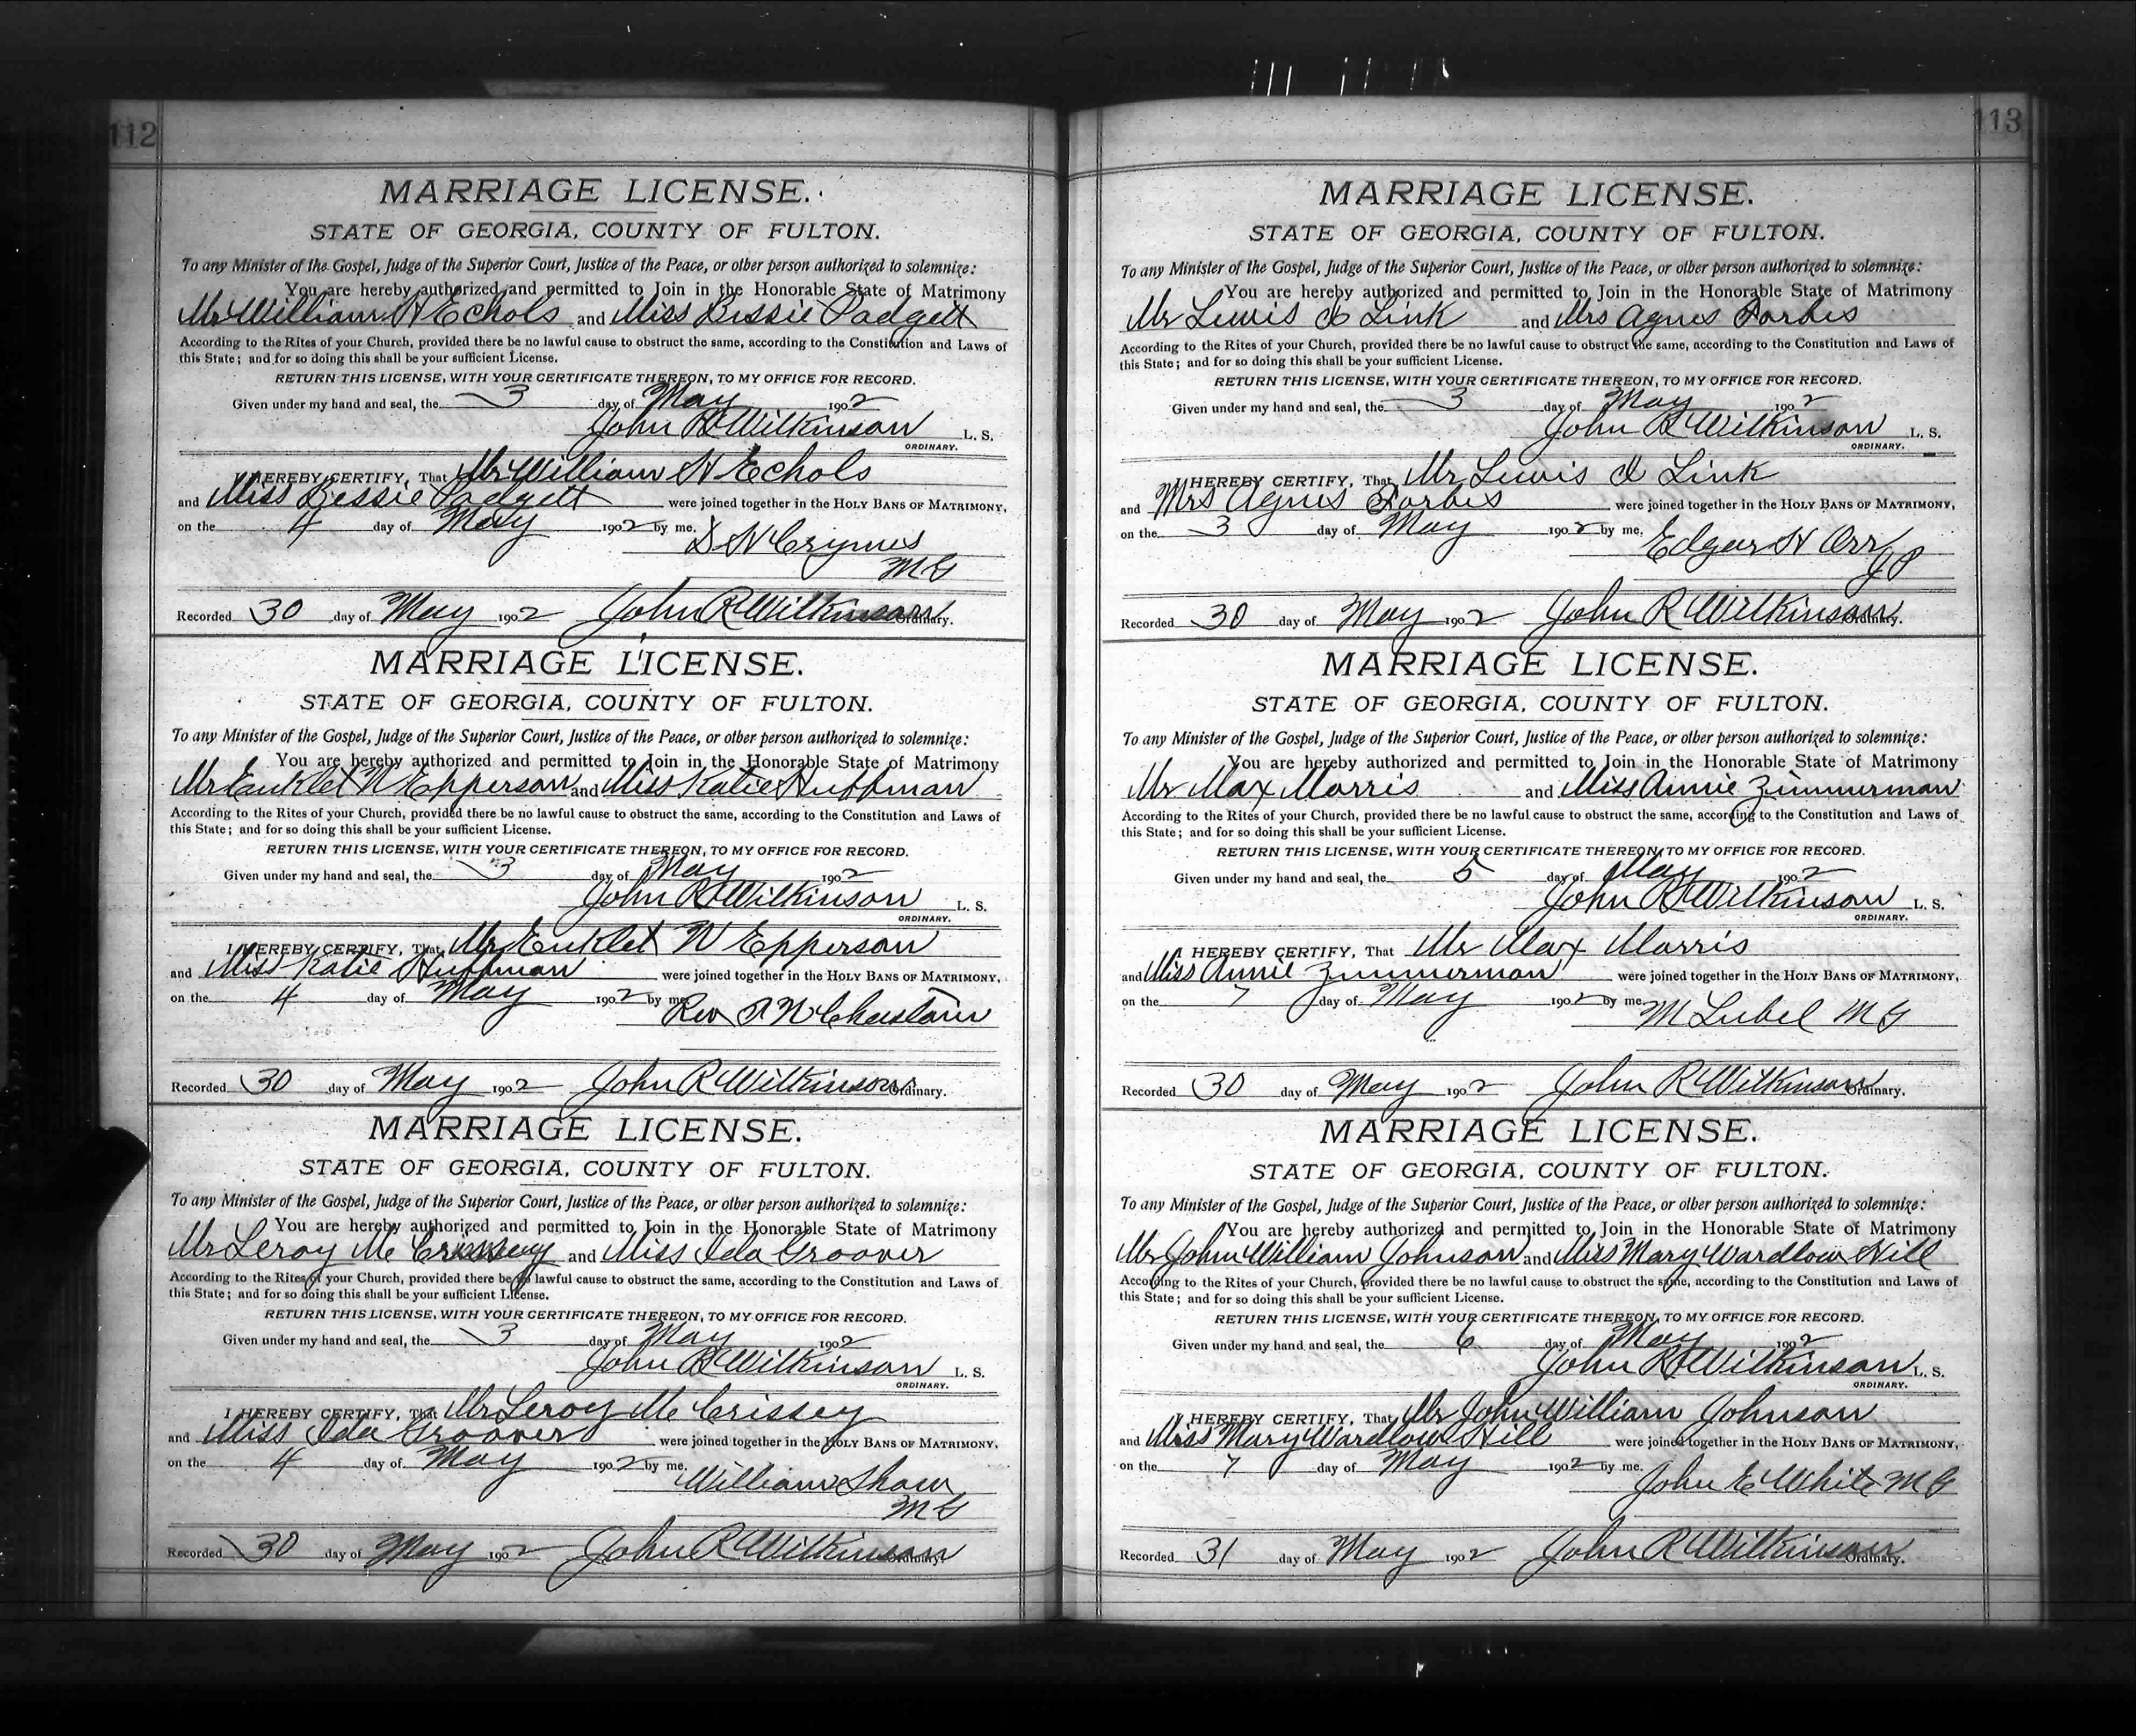 112
MARRIAGE LICENSE.
STATE OF GEORGIA, COUNTY OF FULTON.
To any Minister of the Gospel, Judge of the Superior Court, Justice of the Peace, or other person authorized to solemnize:
You are hereby authorized and permitted to Join in the Honorable State of Matrimony
Mr William H Echols and Miss Bessie Padgett
According to the Rites of your Church, provided there be no lawful cause to obstruct the same, according to the Constitution and Laws of
this State; and for so doing this shall be your sufficient License.
RETURN THIS LICENSE, WITH YOUR CERTIFICATE THEREON, TO MY OFFICE FOR RECORD.
Given under my hand and seal, the 3 day of May 1902
John R Wilkinson L. S.
ORDINARY.
I HEREBY CERTIFY, That Mr William H Echols
and Miss Bessie Padgett were joined together in the HOLY BANS OF MATRIMONY,
on the 4 day of May 1902 by me.
D H Crymes
M G
Recorded 30 day of May 1902 John R Wilkinson Ordinary.
MARRIAGE LICENSE.
STATE OF GEORGIA, COUNTY OF FULTON.
To any Minister of the Gospel, Judge of the Superior Court, Justice of the Peace, or other person authorized to solemnize:
You are hereby authorized and permitted to Join in the Honorable State of Matrimony
Mr N Epperson and Miss Katie Huffman
According to the Rites of your Church, provided there be no lawful cause to obstruct the same, according to the Constitution and Laws of
this State; and for so doing this shall be your sufficient License.
RETURN THIS LICENSE, WITH YOUR CERTIFICATE THEREON, TO MY OFFICE FOR RECORD.
Given under my hand and seal, the 3 day of May 1902
John R Wilkinson L. S.
ORDINARY.
I HEREBY CERTIFY, That Mr N Epperson
and Miss Katie Huffman were joined together in the HOLY BANS OF MATRIMONY,
on the 4 day of May 1902 by me.
Rev N Chastain
Recorded 30 day of May 1902 John R Wilkinson Ordinary.
MARRIAGE LICENSE.
STATE OF GEORGIA, COUNTY OF FULTON.
To any Minister of the Gospel, Judge of the Superior Court, Justice of the Peace, or other person authorized to solemnize:
You are hereby authorized and permitted to Join in the Honorable State of Matrimony
Mr Leroy M Crissey and Miss Ida Groover
According to the Rites of your Church, provided there be no lawful cause to obstruct the same, according to the Constitution and Laws of
this State; and for so doing this shall be your sufficient License.
RETURN THIS LICENSE, WITH YOUR CERTIFICATE THEREON, TO MY OFFICE FOR RECORD.
Given under my hand and seal, the 3 day of May 1902
John R Wilkinson L. S.
ORDINARY.
I HEREBY CERTIFY, That Mr Leroy M Crissey
and Miss Ida Groover were joined together in the HOLY BANS OF MATRIMONY,
on the 4 day of May 1902 by me.
William Shaw
M G
Recorded 30 day of May 1902 John R Wilkinson Ordinary
113
MARRIAGE LICENSE.
STATE OF GEORGIA, COUNTY OF FULTON.
To any Minister of the Gospel, Judge of the Superior Court, Justice of the Peace, or other person authorized to solemnize:
You are hereby authorized and permitted to Join in the Honorable State of Matrimony
Mr Lewis Link and Mrs Agnes Forbis
According to the Rites of your Church, provided there be no lawful cause to obstruct the same, according to the Constitution and Laws of
this State; and for so doing this shall be your sufficient License.
RETURN THIS LICENSE, WITH YOUR CERTIFICATE THEREON, TO MY OFFICE FOR RECORD.
Given under my hand and seal, the 3 day of May 1902
John R Wilkinson L. S.
ORDINARY.
I HEREBY CERTIFY, That Mr Lewis Link
and Mrs Agnes Forbis were joined together in the HOLY BANS OF MATRIMONY,
on the 3 day of May 1902 by me,
Edgar H Orr
J P
Recorded 30 day of May 1902 John R Wilkinson Ordinary.
MARRIAGE LICENSE.
STATE OF GEORGIA, COUNTY OF FULTON.
To any Minister of the Gospel, Judge of the Superior Court, Justice of the Peace, or other person authorized to solemnize:
You are hereby authorized and permitted to Join in the Honorable State of Matrimony
Mr Max Morris and Miss Annie Zimmerman
According to the Rites of your Church, provided there be no lawful cause to obstruct the same, according to the Constitution and Laws of
this State; and for so doing this shall be your sufficient License.
RETURN THIS LICENSE, WITH YOUR CERTIFICATE THEREON, TO MY OFFICE FOR RECORD.
Given under my hand and seal, the 5 day of May 1902
John R Wilkinson L. S.
ORDINARY.
I HEREBY CERTIFY, That Mr Max Morris
and Miss Annie Zimmerman were joined together in the HOLY BANS OF MATRIMONY,
on the 7 day of May 1902 by me.
M Lubel M G
Recorded 30 day of May 1902 John R Wilkinson Ordinary.
MARRIAGE LICENSE.
STATE OF GEORGIA, COUNTY OF FULTON.
To any Minister of the Gospel, Judge of the Superior Court, Justice of the Peace, or other person authorized to solemnize:
You are hereby authorized and permitted to Join in the Honorable State of Matrimony
Mr John William Johnson and Miss Mary Wardlow Hill
According to the Rites of your Church, provided there be no lawful cause to obstruct the same, according to the Constitution and Laws of
this State; and for so doing this shall be your sufficient License.
RETURN THIS LICENSE, WITH YOUR CERTIFICATE THEREON, TO MY OFFICE FOR RECORD.
Given under my hand and seal, the 6 day of May 1902
John R Wilkinson L. S.
ORDINARY.
I HEREBY CERTIFY, That Mr John William Johnson
and Miss Mary Wardlow Hill were joined together in the HOLY BANS OF MATRIMONY,
on the 7 day of May 1902 by me.
John E White M G
Recorded 31 day of May 1902 John R Wilkinson Ordinary.